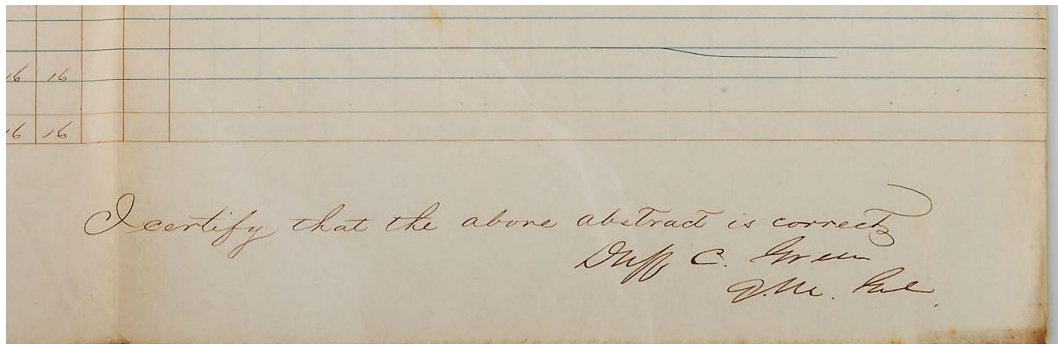 16 16
16 16
I certify that the above abstract is correct
Duff C. Green
Q.M. Genl.